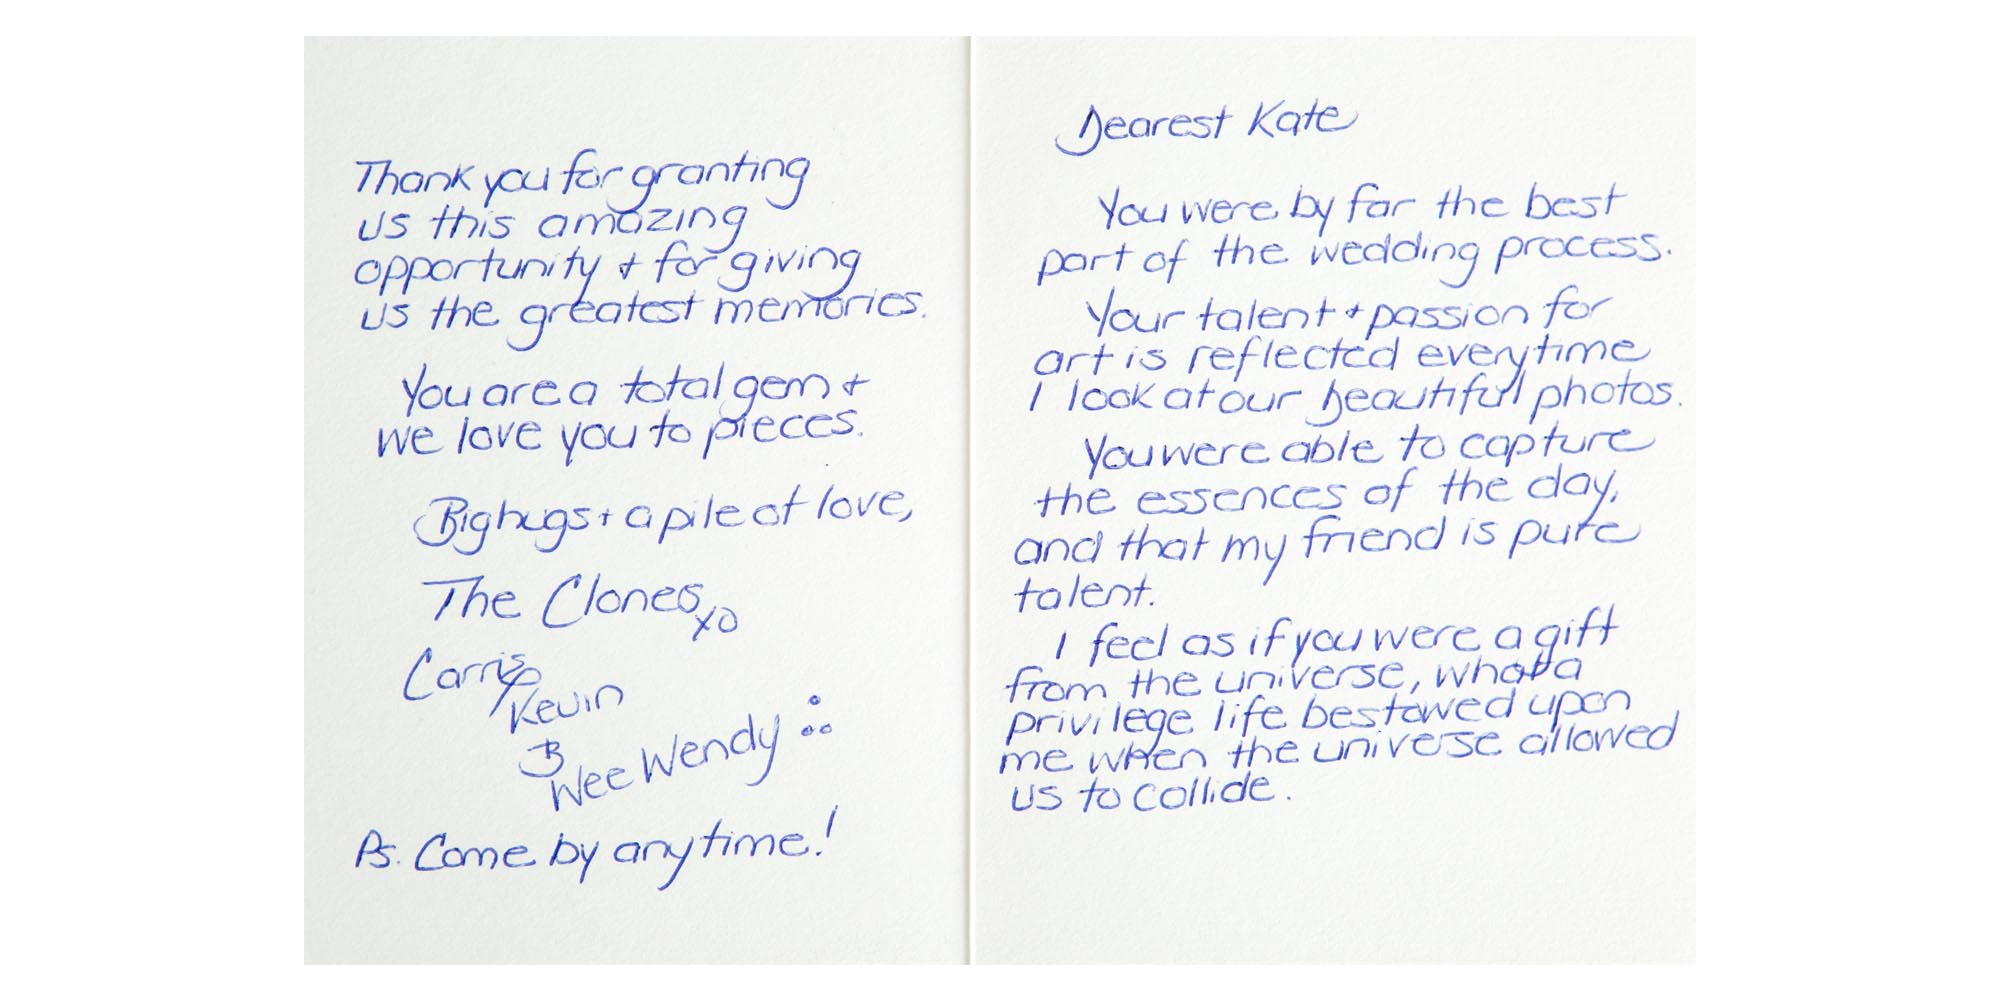 Dearest Kate
You were by far the best
part of the wedding process.
Your talent + passion for
art is reflected everytime
I look at our beautiful photos.
You were able to capture
the essences of the day,
and that my friend is pure
talent.
I feel as if you were a gift
from the universe, what a
privilege life bestowed upon
me when the universe allowed
us to collide.
Thank you for granting
us this amazing
opportunity + for giving
us the greatest memories.
You are a total gem +
we love you to pieces.
Big hugs + a pile of love,
The Clones xo
Kevin
B
Wee Wendy
Ps. Come by anytime!